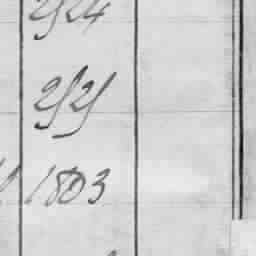 2524
2525
1803